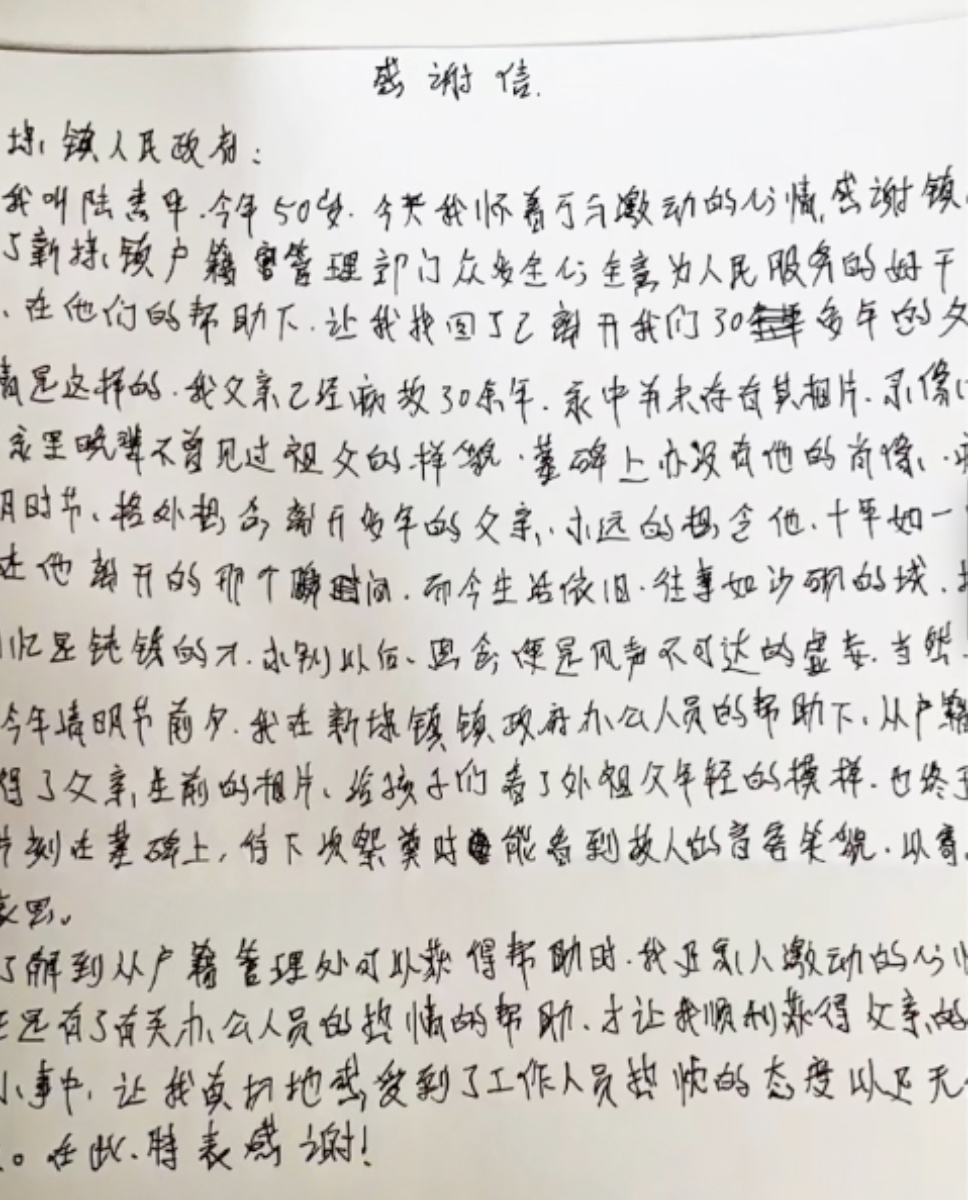 感谢信.
埭镇人民政府:
我叫陆杏年.今年50岁.今天我怀着万分激动的心情,感谢镇
了新埭镇户籍管理部门众多全心全意为人民服务的好干
、在他们的帮助下.让我找回了已离开我们30多年的父
情是这样的.我父亲已经病故30余年.家中并未存有其相片、录像
家里晚辈不曾见过祖父的样貌.墓碑上亦没有他的肖像.
明时节、格外想念离开多年的父亲,永远的想念他.十年如一
述他离开的那个瞬间.而今生活依旧.往事如沙砌的城.
忆是钝锈的刀.永别以后、思念便是风声不可达的虚妄.当然
今年清明节前夕.我在新埭镇镇政府办公人员的帮助下、从户籍
得了父亲生前的相片、给孩子们看了外祖父年轻的模样.也终于
片刻在墓碑上,待下次祭奠时能看到故人的音容笑貌.以寄
哀思。
了解到从户籍管理处可以获得帮助时.我及家人激动的心情
正是有了有关办公人员的热情的帮助、才让我顺利获得父亲的
小事中,让我真切地感受到了工作人员热忱的态度以及无
。在此、特表感谢!